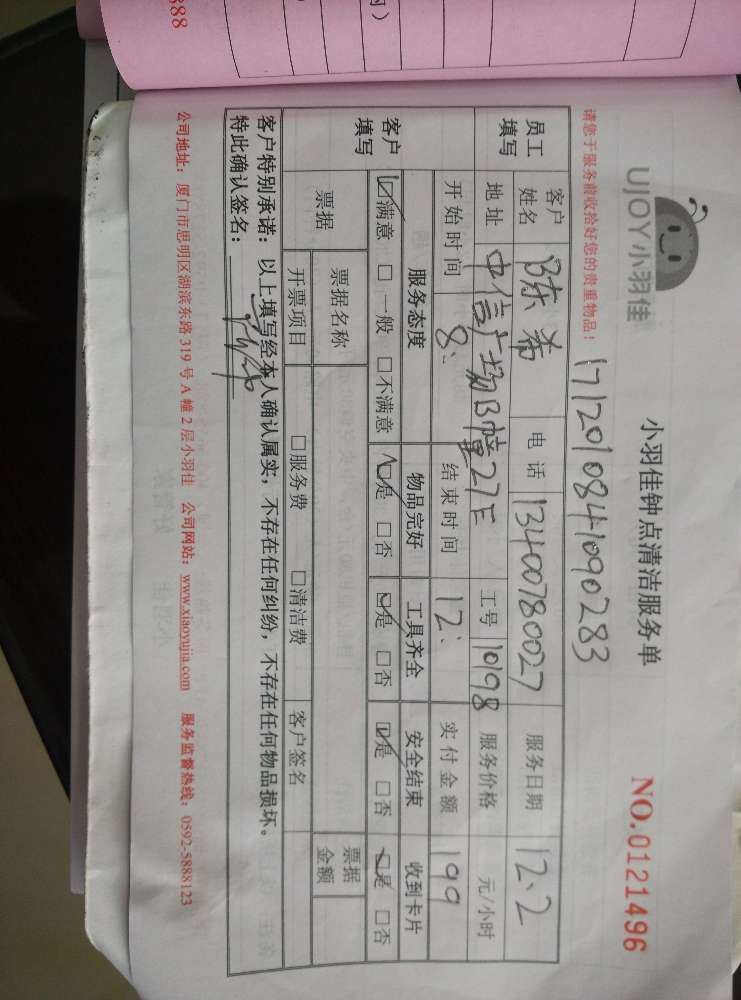 888
UJOY小羽佳
小羽佳钟点清洁服务单
NO.0121496
请您于服务前收拾好您的贵重物品！
1712010841090283
员工填写
客户姓名 陈希 电话 13400780027 服务日期 12.2
地址 中信广场B幢27E 工号 10198 服务价格 元/小时
开始时间 8: 结束时间 12: 实付金额 199
客户填写
服务态度 物品完好 工具齐全 安全结束 收到卡片
☑满意 □一般 □不满意 ☑是 □否 ☑是 □否 ☑是 □否 ☑是 □否
票据 票据名称 票据金额
开票项目 □服务费 □清洁费 客户签名
客户特别承诺：以上填写经本人确认属实，不存在任何纠纷，不存在任何物品损坏。
特此确认签名：
公司地址：厦门市思明区湖滨东路 319 号 A 幢 2 层小羽佳 公司网站：www.xiaoyujia.com 服务监督热线：0592-5888123